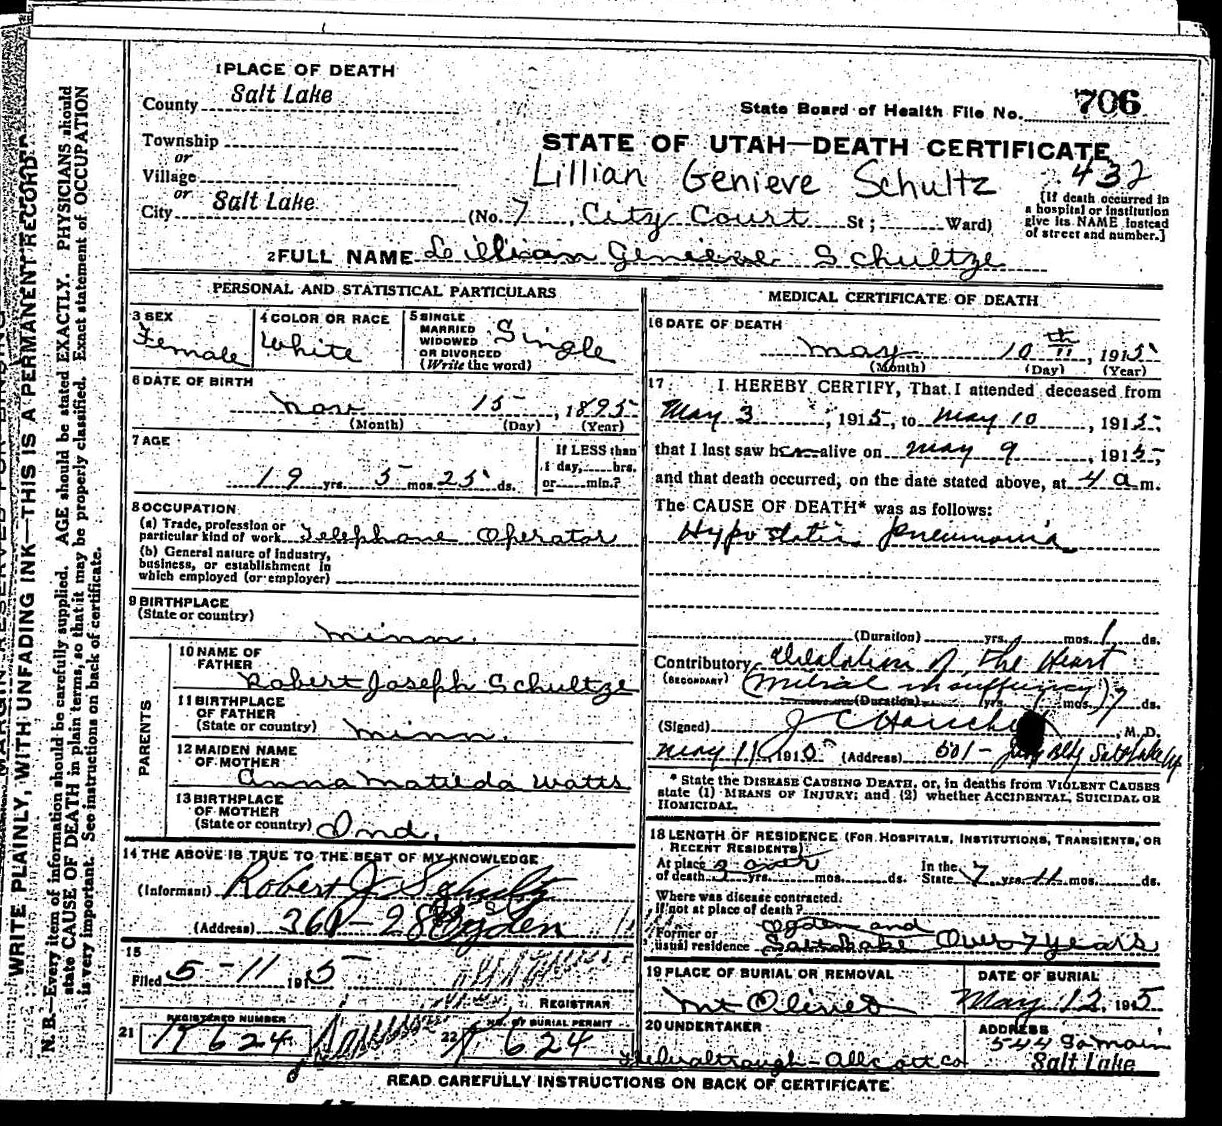 1 PLACE OF DEATH
County Salt Lake
State Board of Health File No. 706
Township
or
Village
or
City Salt Lake
STATE OF UTAH—DEATH CERTIFICATE
Lillian Genieve Schultz 432
(No. 7, City Court St; Ward)
[If death occurred in a hospital or institution give its NAME instead of street and number.]
2 FULL NAME Lillian Genieve Schultze
PERSONAL AND STATISTICAL PARTICULARS
3 SEX
Female
4 COLOR OR RACE
White
5 SINGLE
MARRIED
WIDOWED
OR DIVORCED
(Write the word)
Single
6 DATE OF BIRTH
Nov 15, 1895
(Month) (Day) (Year)
7 AGE
19 yrs. 5 mos. 25 ds.
If LESS than
1 day, hrs.
or min.?
8 OCCUPATION
(a) Trade, profession or
particular kind of work Telephone Operator
(b) General nature of industry,
business, or establishment in
which employed (or employer)
9 BIRTHPLACE
(State or country)
Minn.
PARENTS
10 NAME OF
FATHER
Robert Joseph Schultze
11 BIRTHPLACE
OF FATHER
(State or country) Minn.
12 MAIDEN NAME
OF MOTHER
Anna Matilda Watts
13 BIRTHPLACE
OF MOTHER
(State or country) Ind.
14 THE ABOVE IS TRUE TO THE BEST OF MY KNOWLEDGE
(Informant) Robert J. Schultz
(Address) Ogden
15
Filed 5-11 1915
REGISTRAR
21 REGISTERED NUMBER
624
22 NO. OF BURIAL PERMIT
624
MEDICAL CERTIFICATE OF DEATH
16 DATE OF DEATH
May 10th, 1915
(Month) (Day) (Year)
17 I HEREBY CERTIFY, That I attended deceased from
May 3, 1915, to May 10, 1915,
that I last saw her alive on May 9, 1915,
and that death occurred, on the date stated above, at 4 a m.
The CAUSE OF DEATH* was as follows:
Hypostatic Pneumonia
(Duration) yrs. mos. 1 ds.
Contributory Dilalation of The Heart
(SECONDARY) (Mitral insufficiency)
(Duration) yrs. mos. 7 ds.
(Signed) M. D.
May 11, 1915 (Address) 501-
* State the DISEASE CAUSING DEATH, or, in deaths from VIOLENT CAUSES
state (1) MEANS OF INJURY; and (2) whether ACCIDENTAL, SUICIDAL OR
HOMICIDAL.
18 LENGTH OF RESIDENCE (FOR HOSPITALS, INSTITUTIONS, TRANSIENTS, OR
RECENT RESIDENTS)
At place
of death 3 over yrs. mos. ds.
In the
State 7 yrs. 11 mos. ds.
Where was disease contracted,
If not at place of death?
Former or
usual residence Ogden and
Salt Lake Over 7 years
19 PLACE OF BURIAL OR REMOVAL
Mt Olivet
DATE OF BURIAL
May 12, 1915
20 UNDERTAKER
ADDRESS
544 So main
Salt Lake
READ CAREFULLY INSTRUCTIONS ON BACK OF CERTIFICATE
WRITE PLAINLY, WITH UNFADING INK—THIS IS A PERMANENT RECORD
N. B.—Every item of information should be carefully supplied. AGE should be stated EXACTLY. PHYSICIANS should
state CAUSE OF DEATH in plain terms, so that it may be properly classified. Exact statement of OCCUPATION
is very important. See instructions on back of certificate.